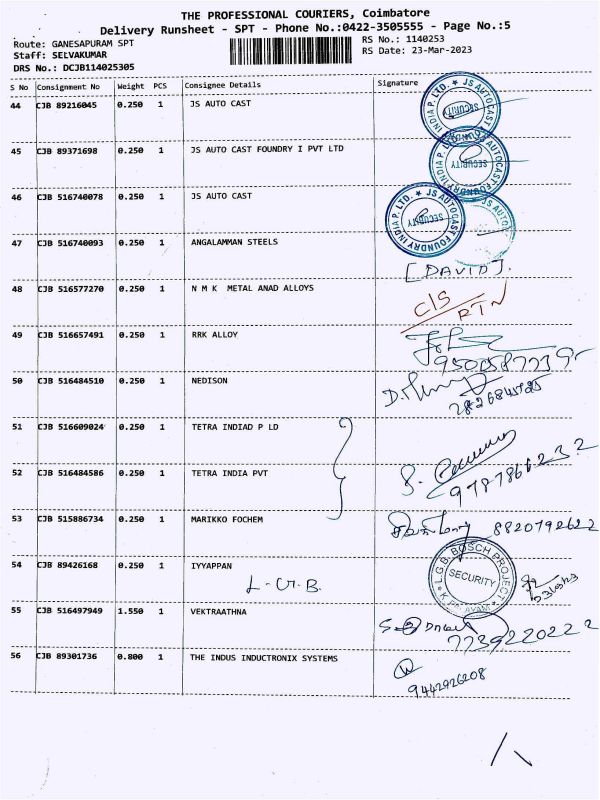 THE PROFESSIONAL COURIERS, Coimbatore
Delivery Runsheet - SPT - Phone No.:0422-3505555 - Page No.:5
Route: GANESAPURAM SPT
Staff: SELVAKUMAR
DRS No.: DCJB114025305
RS No.: 1140253
RS Date: 23-Mar-2023
S No Consignment No Weight PCS Consignee Details Signature
44 CJB 89216045 0.250 1 JS AUTO CAST
JS AUTOCAST FOUNDRY INDIA P. LTD. SECURITY
45 CJB 89371698 0.250 1 JS AUTO CAST FOUNDRY I PVT LTD
JS AUTOCAST FOUNDRY INDIA P. LTD. SECURITY
46 CJB 516740078 0.250 1 JS AUTO CAST
JS AUTOCAST FOUNDRY INDIA P. LTD. SECURITY
47 CJB 516740093 0.250 1 ANGALAMMAN STEELS
[DAVID].
48 CJB 516577270 0.250 1 N M K METAL ANAD ALLOYS
C/S
RTN
49 CJB 516657491 0.250 1 RRK ALLOY
50 CJB 516484510 0.250 1 NEDISON
51 CJB 516609024 0.250 1 TETRA INDIAD P LD
52 CJB 516484586 0.250 1 TETRA INDIA PVT
9787866232
53 CJB 515886734 0.250 1 MARIKKO FOCHEM
8820792622
54 CJB 89426168 0.250 1 IYYAPPAN
L.G.B.
L.G.B. BOSCH PROJECT SECURITY
55 CJB 516497949 1.550 1 VEKTRAATHNA
7739220222
56 CJB 89301736 0.800 1 THE INDUS INDUCTRONIX SYSTEMS
9442926208